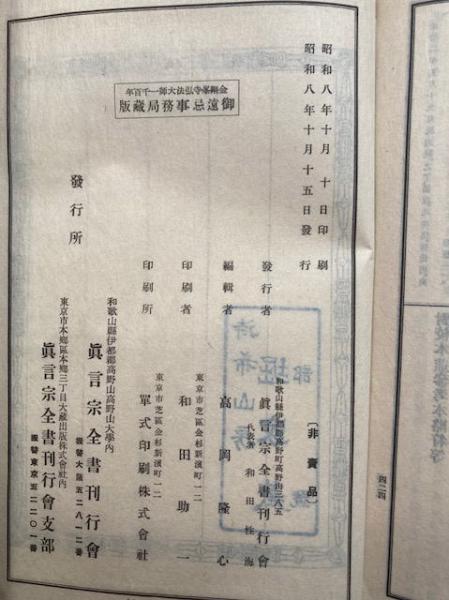 昭和八年十月十日印刷
昭和八年十月十五日發行
〔非賣品〕
金剛峯寺弘法大師一千百年
御遠忌事務局藏版
和歌山縣伊都郡高野町高野山三八五
發行者 眞言宗全書刊行會
代表者 和田性海
編輯者 高岡隆心
東京市芝區金杉新濱町一二
印刷者 和田助一
東京市芝區金杉新濱町一二
印刷所 單式印刷株式會社
發行所
和歌山縣伊都郡高野山高野山大學內
眞言宗全書刊行會
振替大阪五二八一二番
東京市本鄕區本鄕三丁目大藏出版株式會社內
眞言宗全書刊行會支部
振替東京五二二〇一番
四二四